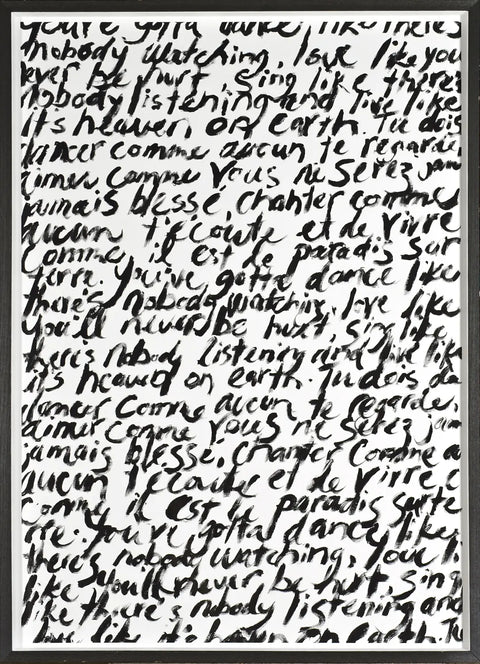 you're gotta dance like there's
nobody watching, love like you
ever be hurt, sing like there's
nobody listening and live like
it's heaven, on earth. Tu dois
dancer comme aucun te regarde,
aimer comme vous ne serez jam
jamais blessé, chanter comme
aucun t'écoute et de vivre
comme il est le paradis sur
terre. You've gotta dance like
there's nobody watching, love like
you'll never be hurt, sing like
there's nobody listening and live lik
it's heaven on earth. Tu dois da
dancer comme aucun te regarde,
aimer comme vous ne serez jam
jamais blessé, chanter comme a
aucun t'écoute et de vivre c
comme il est le paradis sur te
rre. You've gotta dance like
there's nobody watching, love li
like you'll never be hurt, sing
like there's nobody listening and
live like it's heaven on earth. Tu